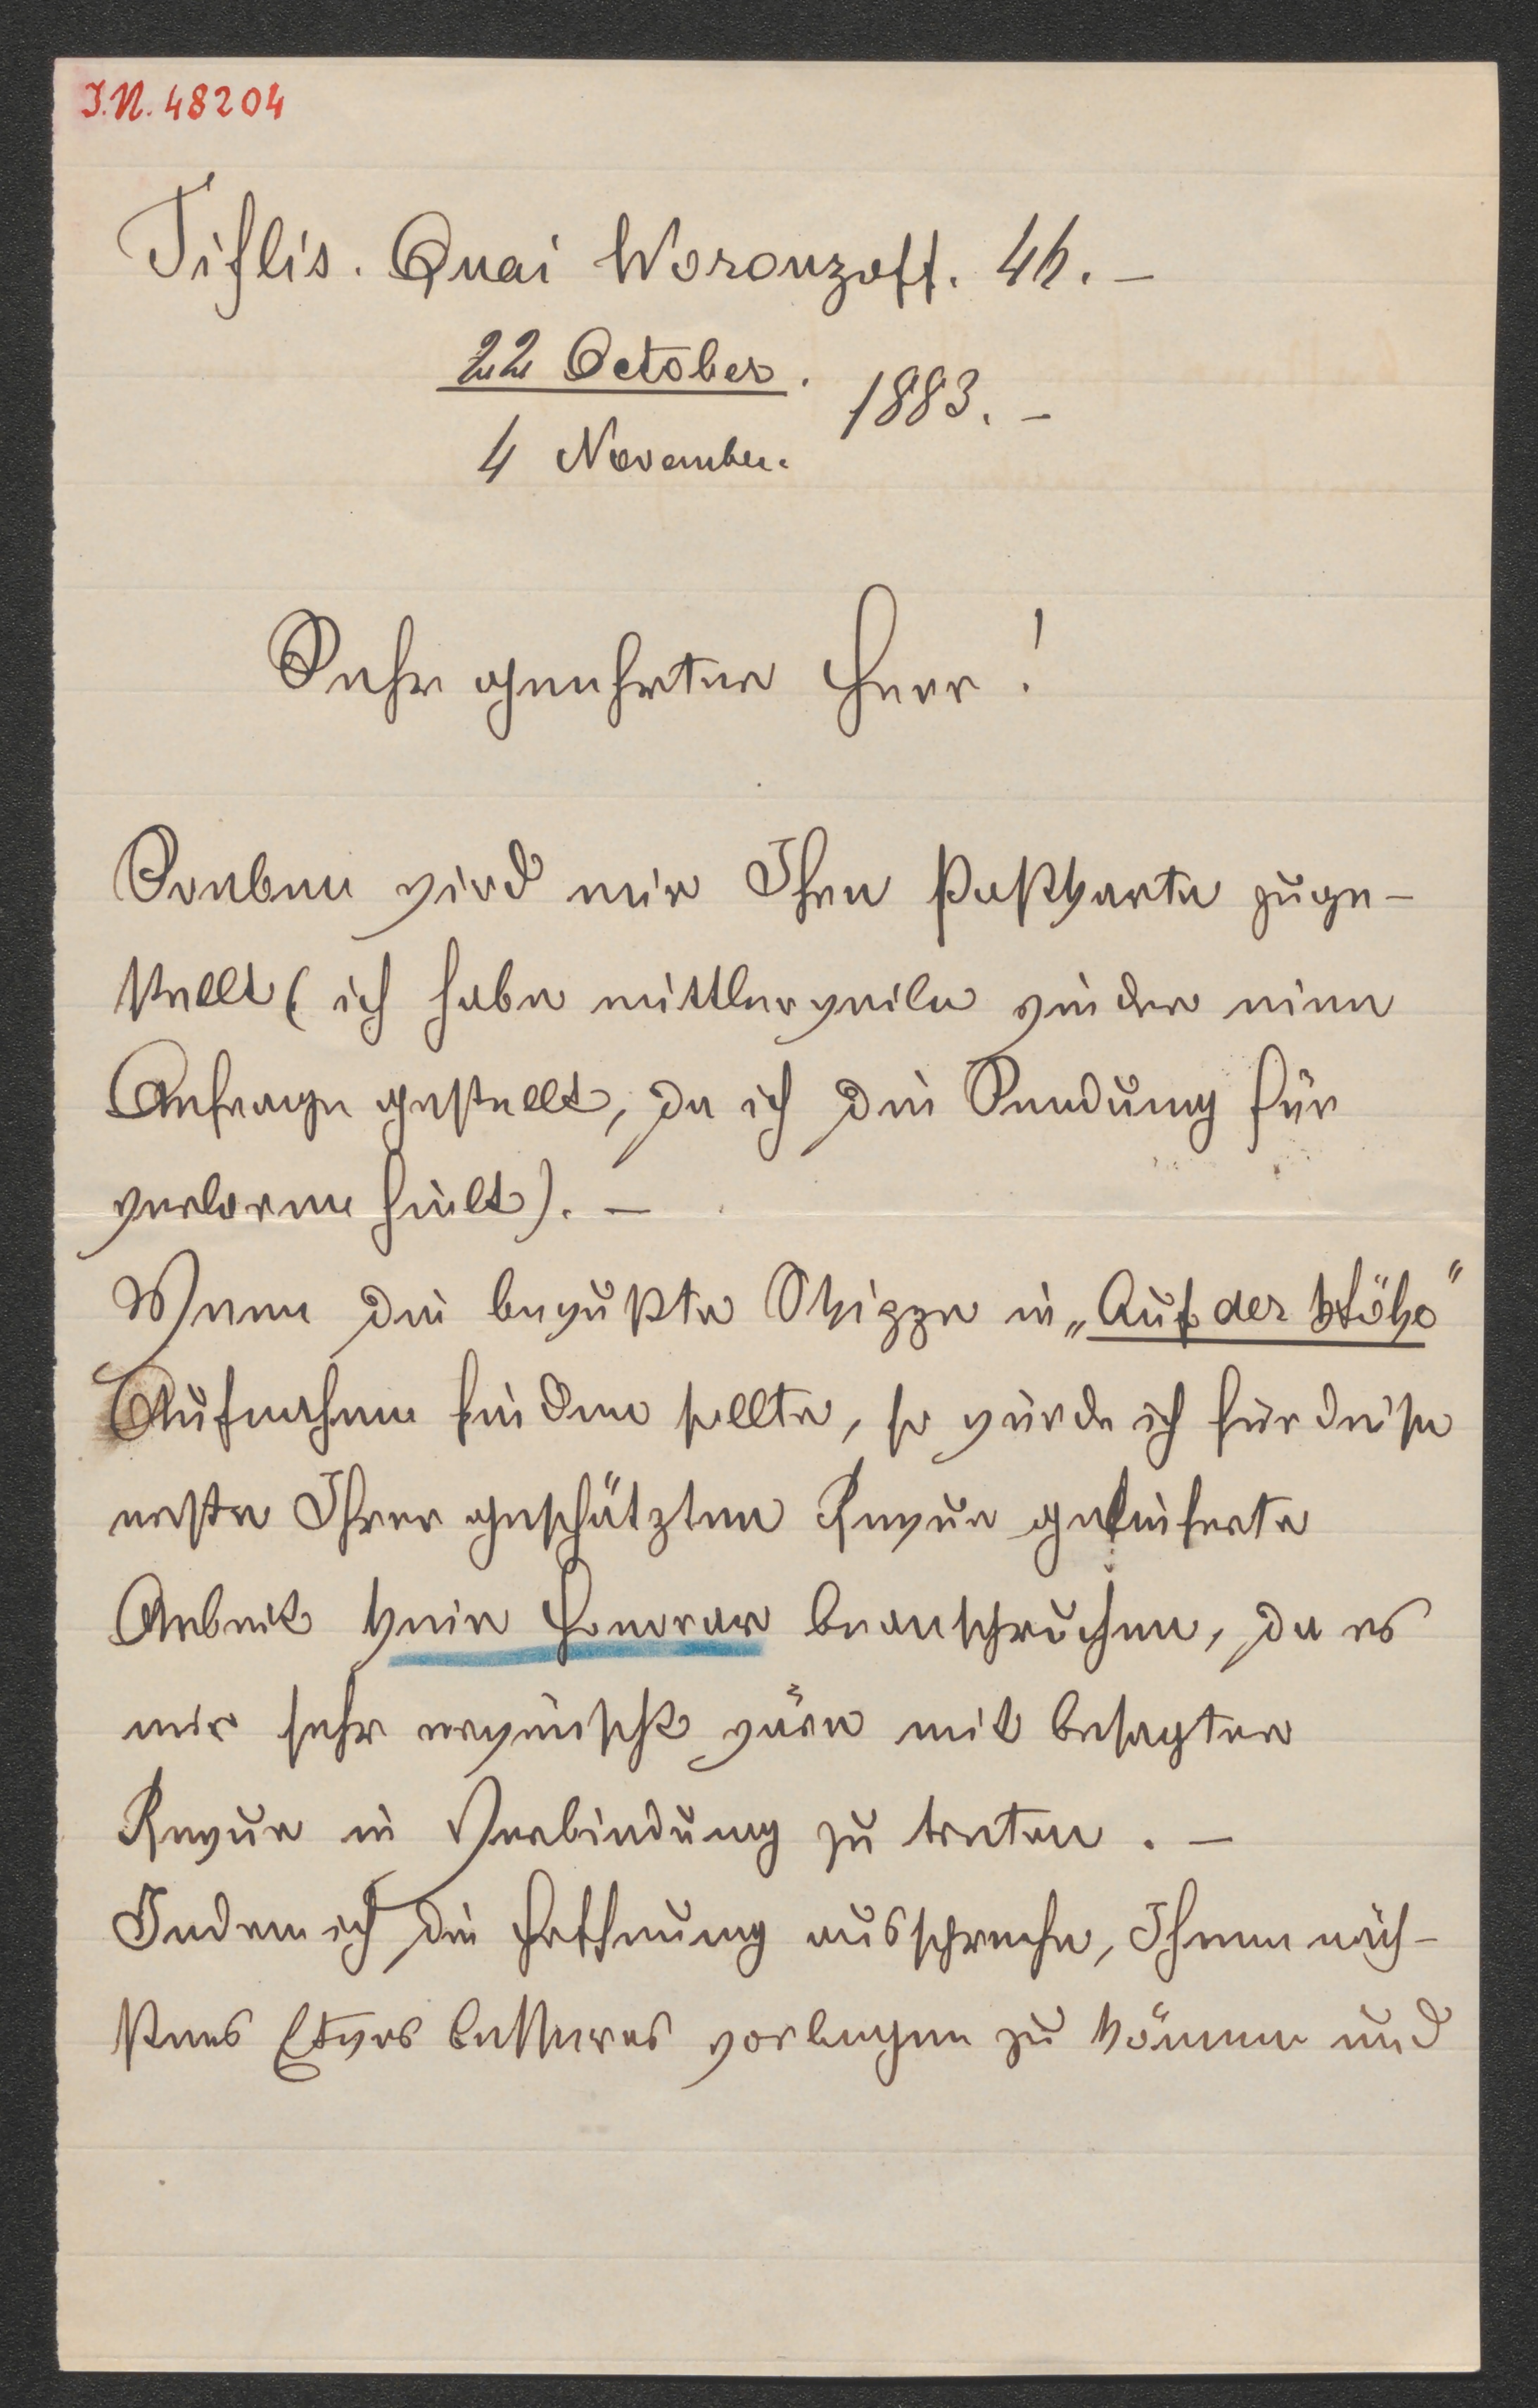 I.N. 48204
Tiflis. Quai Woronzoff. 46. –
22 October. 1883. –
4 November.
Sehr geehrter Herr!
Soeben wird mir Ihre Postkarte zuge-
stellt (ich habe mittlerweile wieder eine
Anfrage gestellt, da ich die Sendung für
verloren hielt). –
Wenn die bewußte Skizze in „Auf der Höhe"
Aufnahme finden sollte, so würde ich für diese
erste Ihrer geschätzten Revue gelieferte
Arbeit kein Honorar beanspruchen, da es
mir sehr erwünscht wäre mit besagter
Revue in Verbindung zu treten. –
Indem ich die Hoffnung ausspreche, Ihnen näch-
stens Etwas besseres vorlegen zu können und